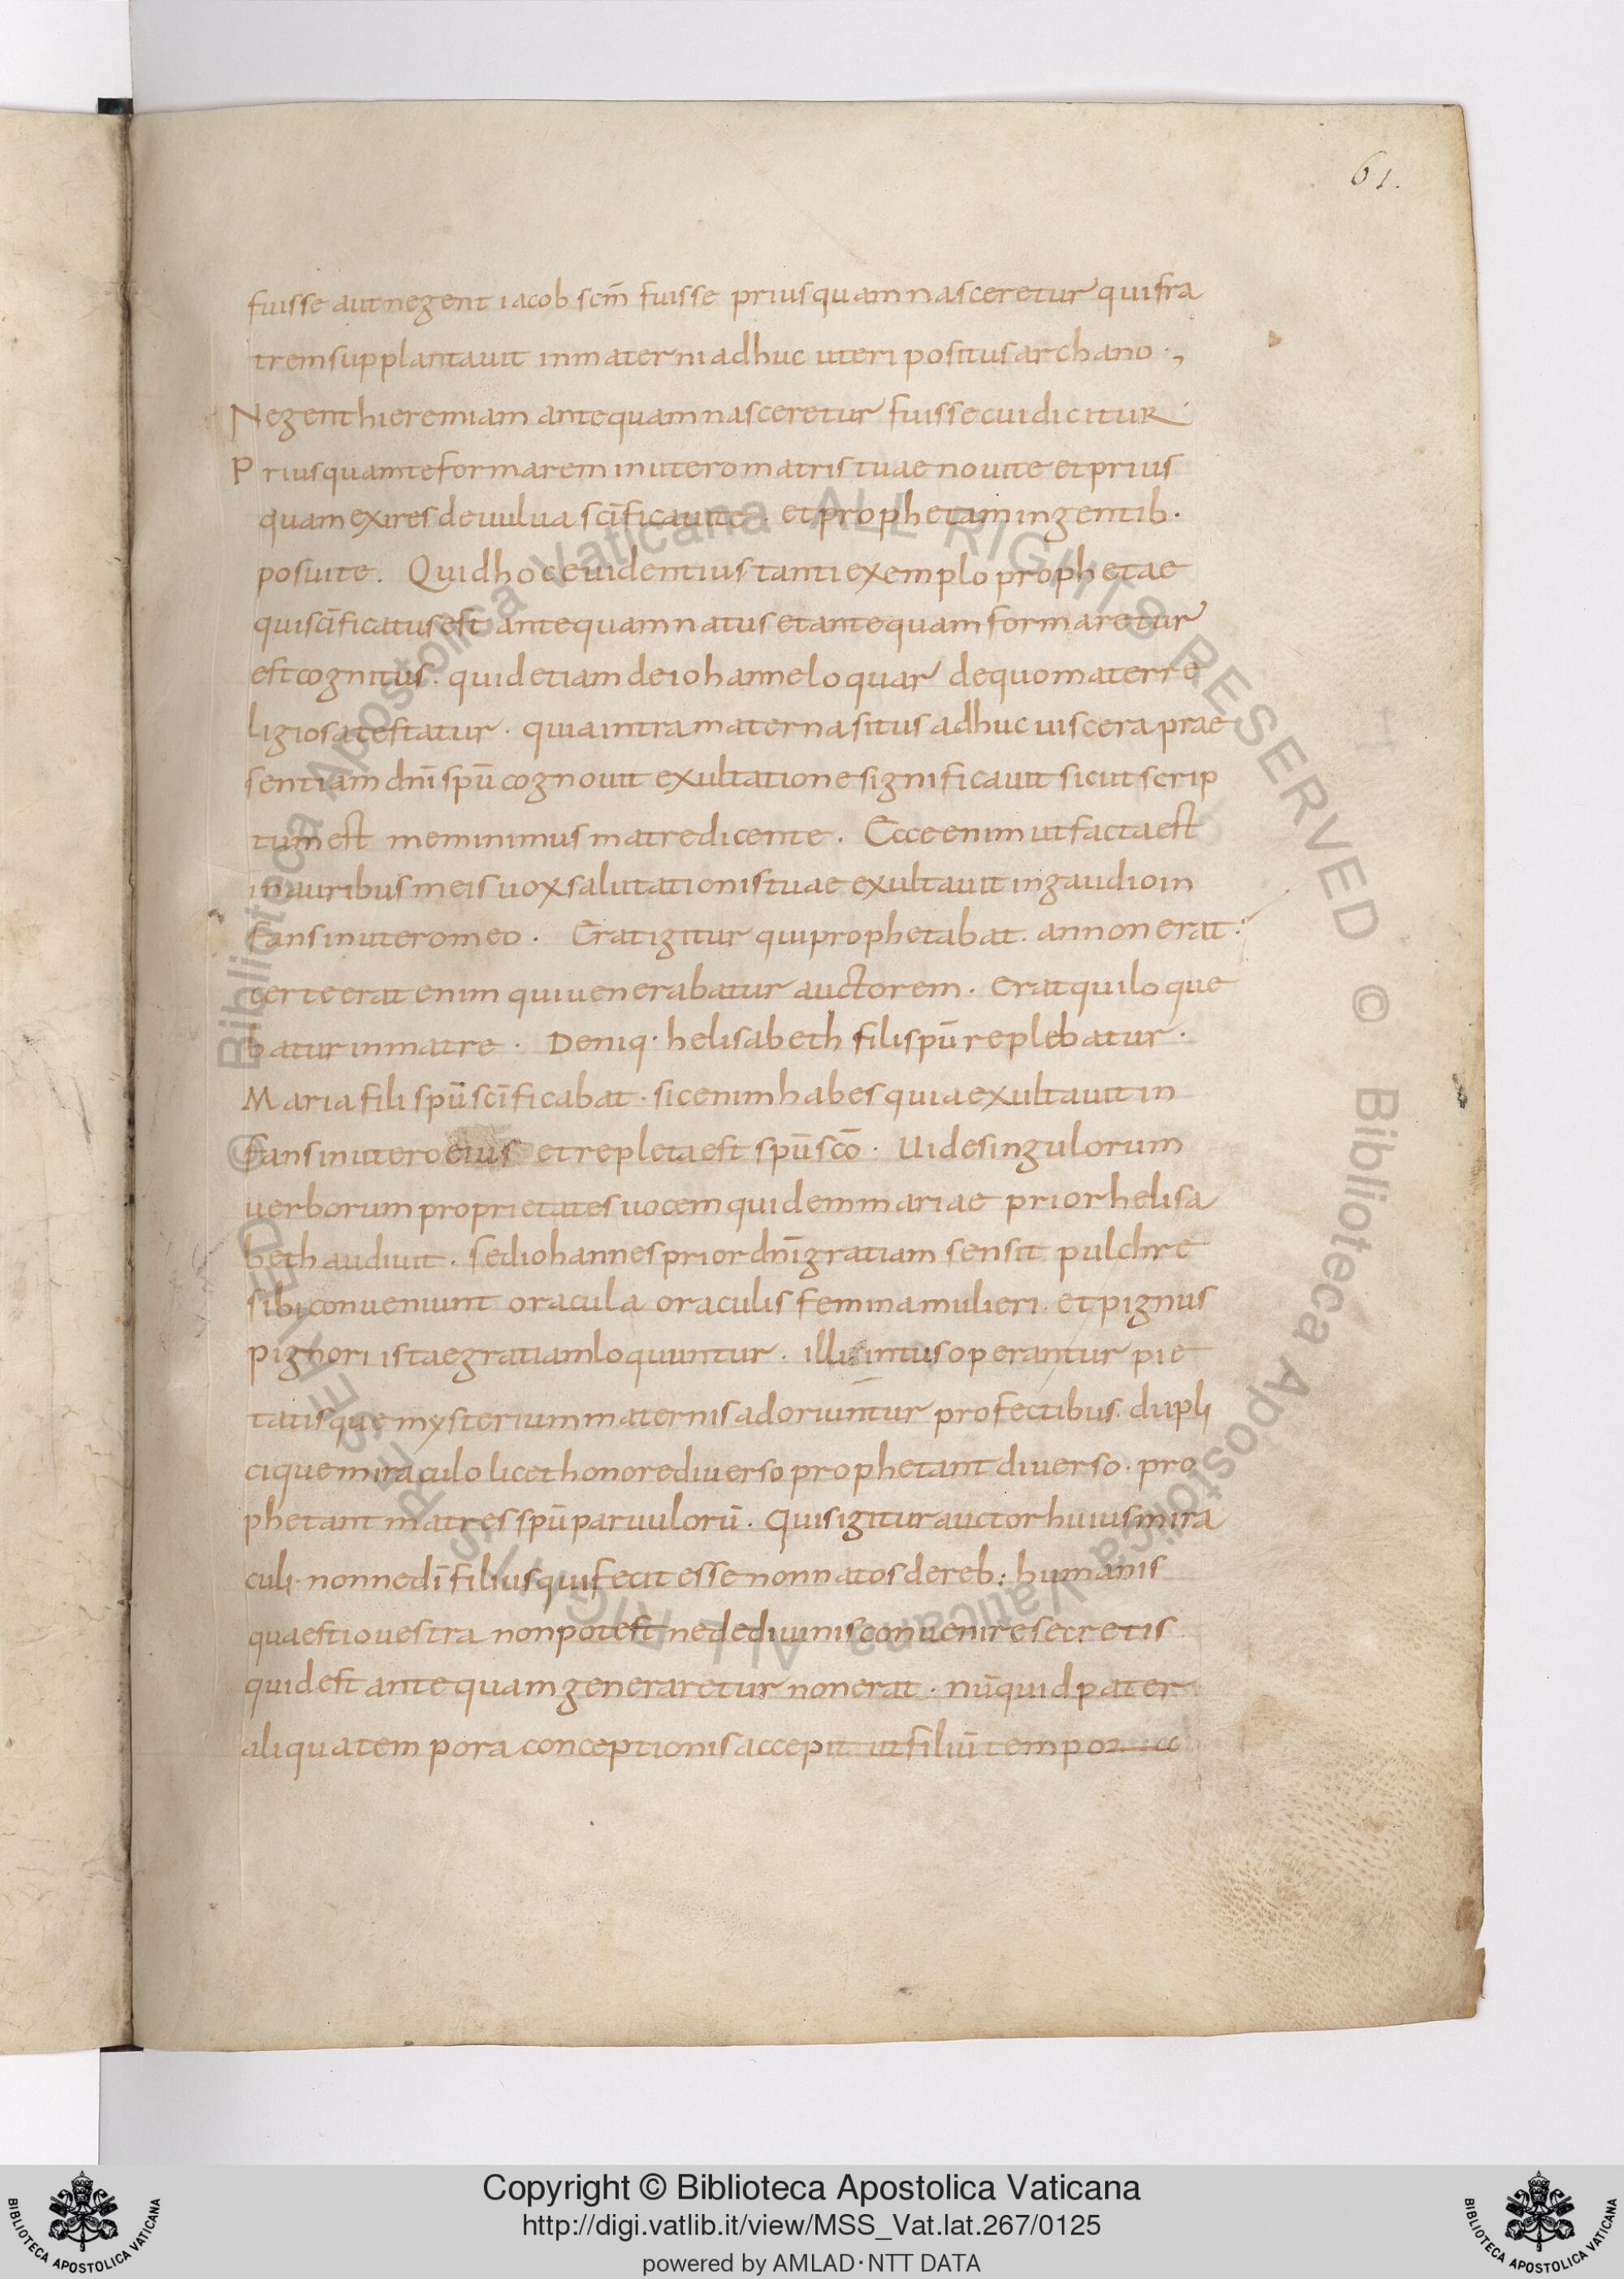 61.
fuisse aut negent iacob scm̄ fuisse priusquam nasceretur qui fra
trem supplantauit in materni adhuc uteri positus archano .,
Negent hieremiam antequam nasceretur fuisse cui dicitur
Priusquam te formarem in utero matris tuae noui te et prius
quam exires de uulua sc̄ificaui te . et prophetam in gentib.
posui te . Quid hoc euidentius tanti exemplo prophetae
qui sc̄ificatus est antequam natus et antequam formaretur
est cognitus . quid etiam de iohanne loquar de quo mater re
ligiosa testatur . quia intra materna situs adhuc uiscera prae
sentiam dnī spū cognouit exultatione significauit sicut scrip
tum est meminimus matre dicente . Ecce enim ut facta est
in auribus meis uox salutationis tuae exultauit in gaudio in
fans in utero meo . Erat igitur qui prophetabat . an non erat .
certe erat enim qui uenerabatur auctorem . erat qui loque
batur in matre . Deniq. helisabeth fili spū replebatur .
Maria fili spū sc̄ificabat . sic enim habes quia exultauit in
fans in utero eius et repleta est spū scō . Uide singulorum
uerborum proprietates uocem quidem mariae prior helisa
beth audiuit . sed iohannes prior dnī gratiam sensit pulchre
sibi conueniunt oracula oraculis femina mulieri . et pignus
pignori istae gratiam loquuntur . illi intus operantur pie
tatisque mysterium maternis adoriuntur profectibus . dupli
cique miraculo licet honore diuerso prophetant diuerso . pro
phetant matres spū paruulorū . Quis igitur auctor huius mira
culi . nonne dī filius qui fecit esse non natos de reb: humanis
quaestio uestra non potest ne de diuinis conuenire secretis
quid est antequam generaretur non erat . nūquid pater
aliqua tempora conceptionis accepit ut filiū
Copyright © Biblioteca Apostolica Vaticana
http://digi.vatlib.it/view/MSS_Vat.lat.267/0125
powered by AMLAD · NTT DATA
BIBLIOTECA APOSTOLICA VATICANA
BIBLIOTECA APOSTOLICA VATICANA
© Biblioteca Apostolica Vaticana ALL RIGHTS RESERVED © Biblioteca Apostolica Vaticana ALL RIGHTS RESERVED